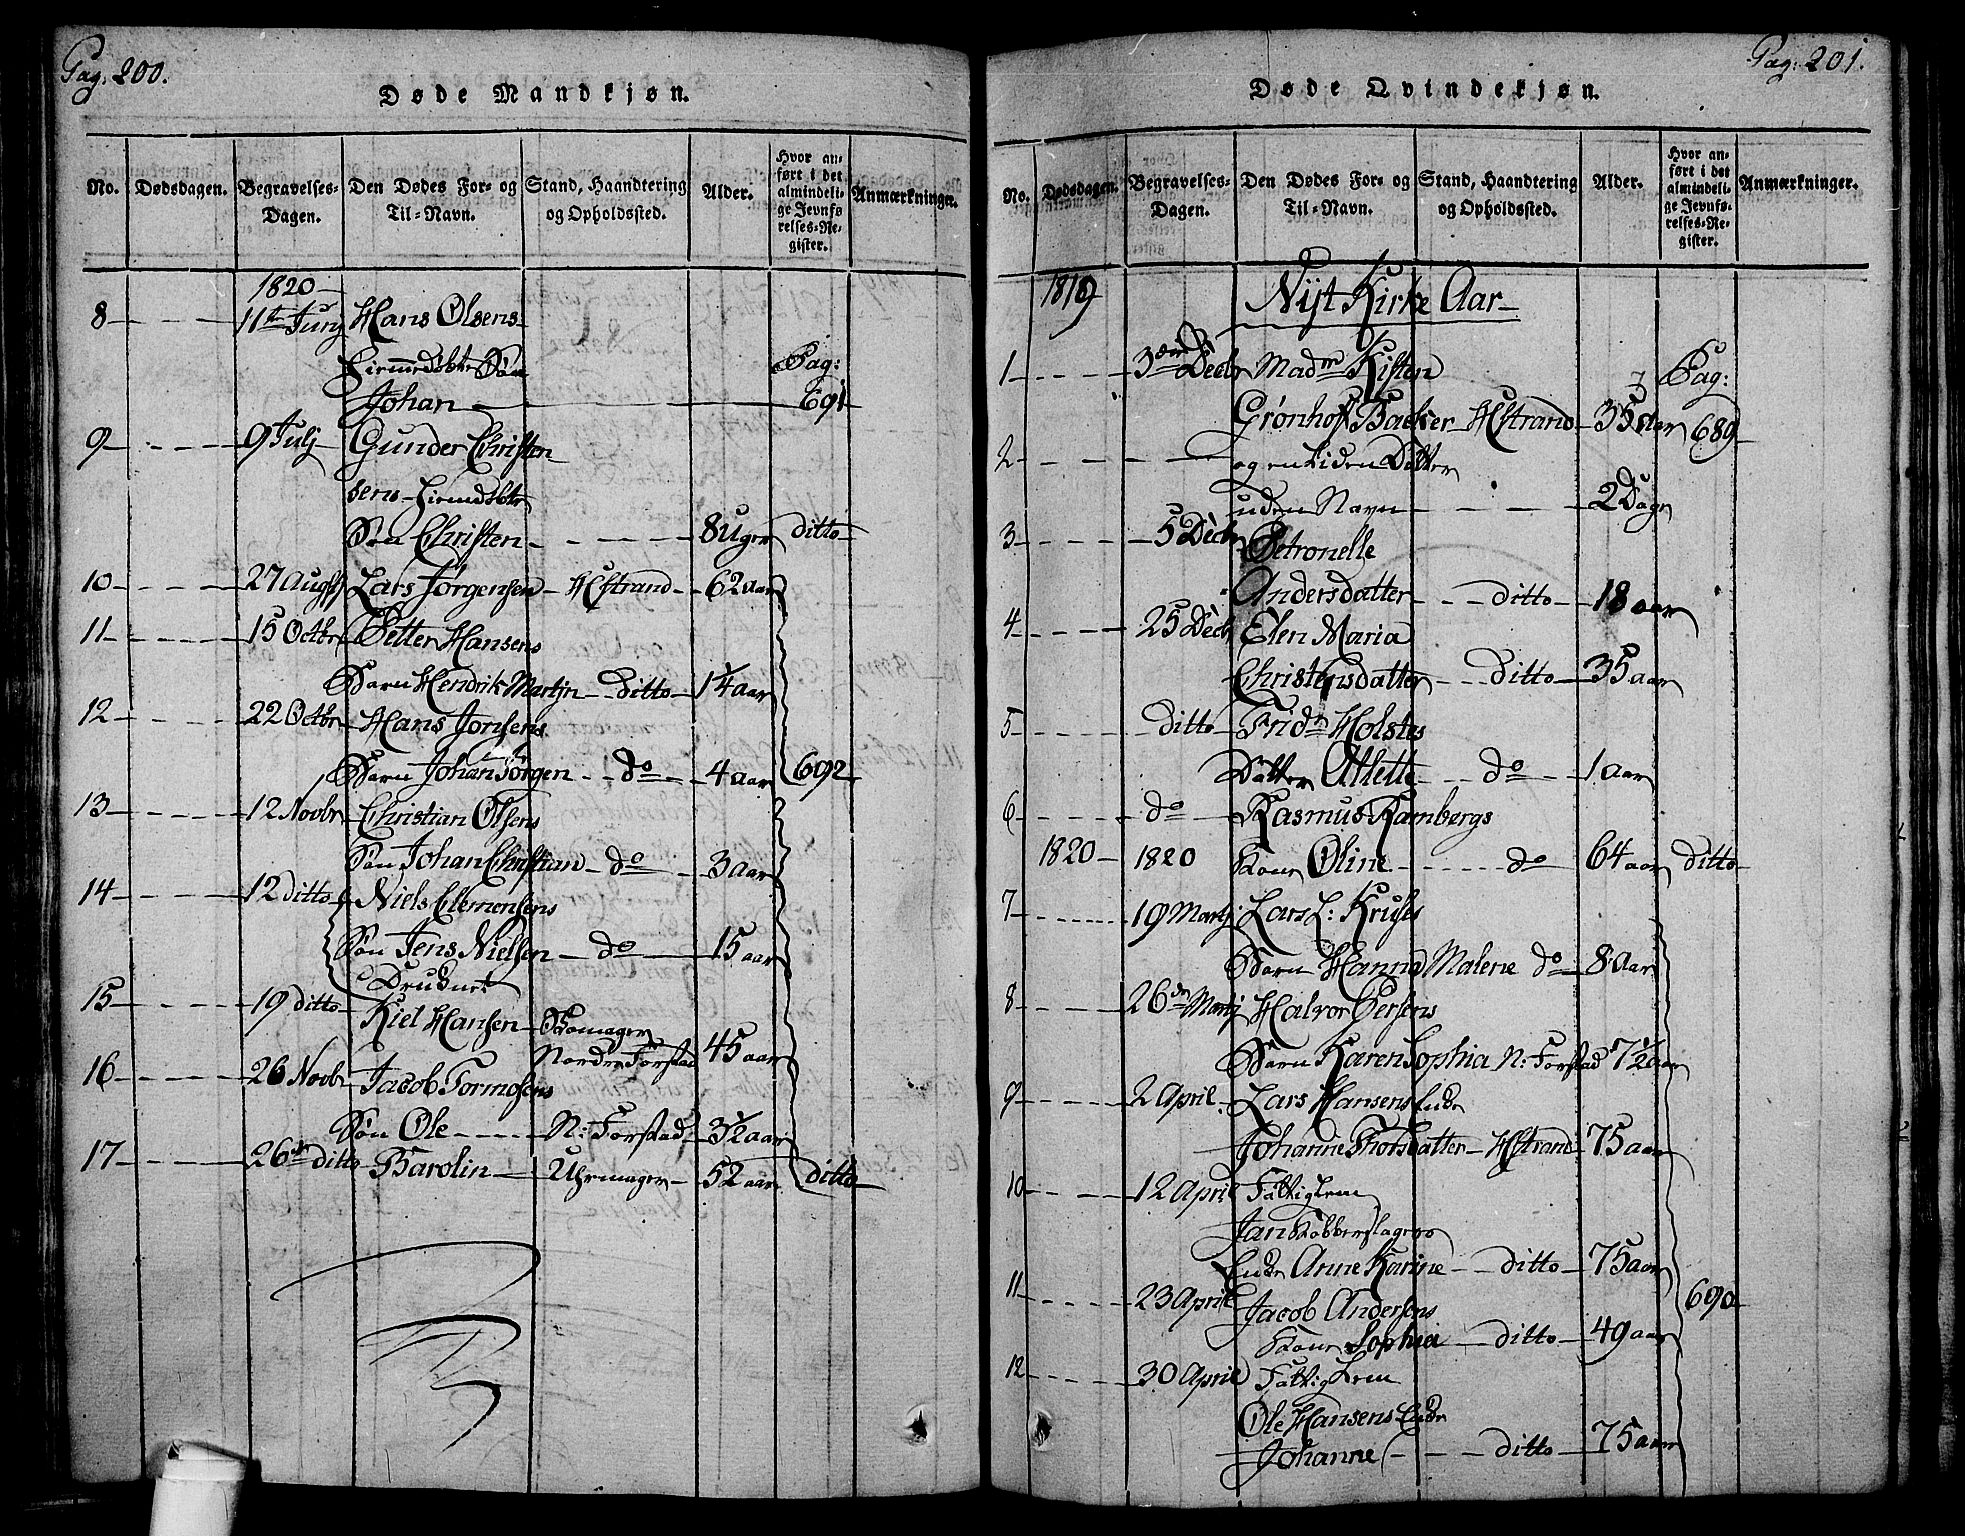 Pag. 200.
Døde Mandkjøn.
No.
Dødsdagen.
Begravelses-
Dagen.
Den Dødes For- og
Til-Navn.
Stand, Haandtering
og Opholdssted.
Alder.
Hvor an-
ført i det
almindeli-
ge Jevnfø
relses-Re-
gister.
Anmærkninger.
1820
8 11te Junj Hans Olsens
Søn Pag:
Johan 691
9 9 Julj Gunder Christen
sens
Søn Christen 8 Uger ditto
10 27 Augstj Lars Jørgensen Hlstrand 62 aar
11 15 Octbr Petter Hansens
Barn Hendrik Martjn ditto 1¼ aar
12 22 Octbr Hans Jonsens
Barn Johan Jørgen do 4 aar 692
13 12 Novbr Christian Olsens
Søn Johan Christian do 3 aar
14 12 ditto Niels Clemensens
Søn Jens Nielsen do 15 aar
Druknet
15 19 ditto Kiel Hansen
Nordre Forstad 45 aar
16 26 Novbr Jacob Tormosens
Søn Ole N: Forstad 3½ aar
17 26de ditto Barolin Uhrmager 52 aar ditto
Pag: 201.
Døde Qvindekjøn.
No.
Dødsdagen.
Begravelses-
Dagen.
Den Dødes For- og
Til-Navn.
Stand, Haandtering
og Opholdssted.
Alder.
Hvor an-
ført i det
almindeli-
ge Jevnfø-
relses-Re-
gister.
Anmærkninger.
1819 Nyt Kirke Aar
1 3die Decbr Madm Kisten Pag:
Grønhof Backer Hlstrand 35 Aar 689
2 og en liden Datter
uden Navn 2 Dage
3 5 Decbr Petronelle
Andersdatter ditto 18 aar
4 25 Decbr Elen Maria
Christensdatter ditto 35 aar
5 ditto Frid Holstes
Datter Atlette do 1 aar
6 do Rasmus Rambergs
1820 1820 Kone Oline do 64 aar ditto
7 19 Martj Lars L: Kruses
Barn Hanna Malene do 8 Aar
8 26de Martj Halvor Persens
Barn Karen Sophia N: Forstad 7½ aar
9 2 April Lars Hansens Enke
Johanne Thorsdatter Hlstrand 75 aar
10 12 April Fattiglem
Jan Kobberslagers
Enke Anne Karine ditto 75 aar
11 23 April Jacob Andersens 690
Kone Sophia ditto 49 aar
12 30 April Fattig Lem
Ole Hansens Enke
Johanne ditto 75 aar